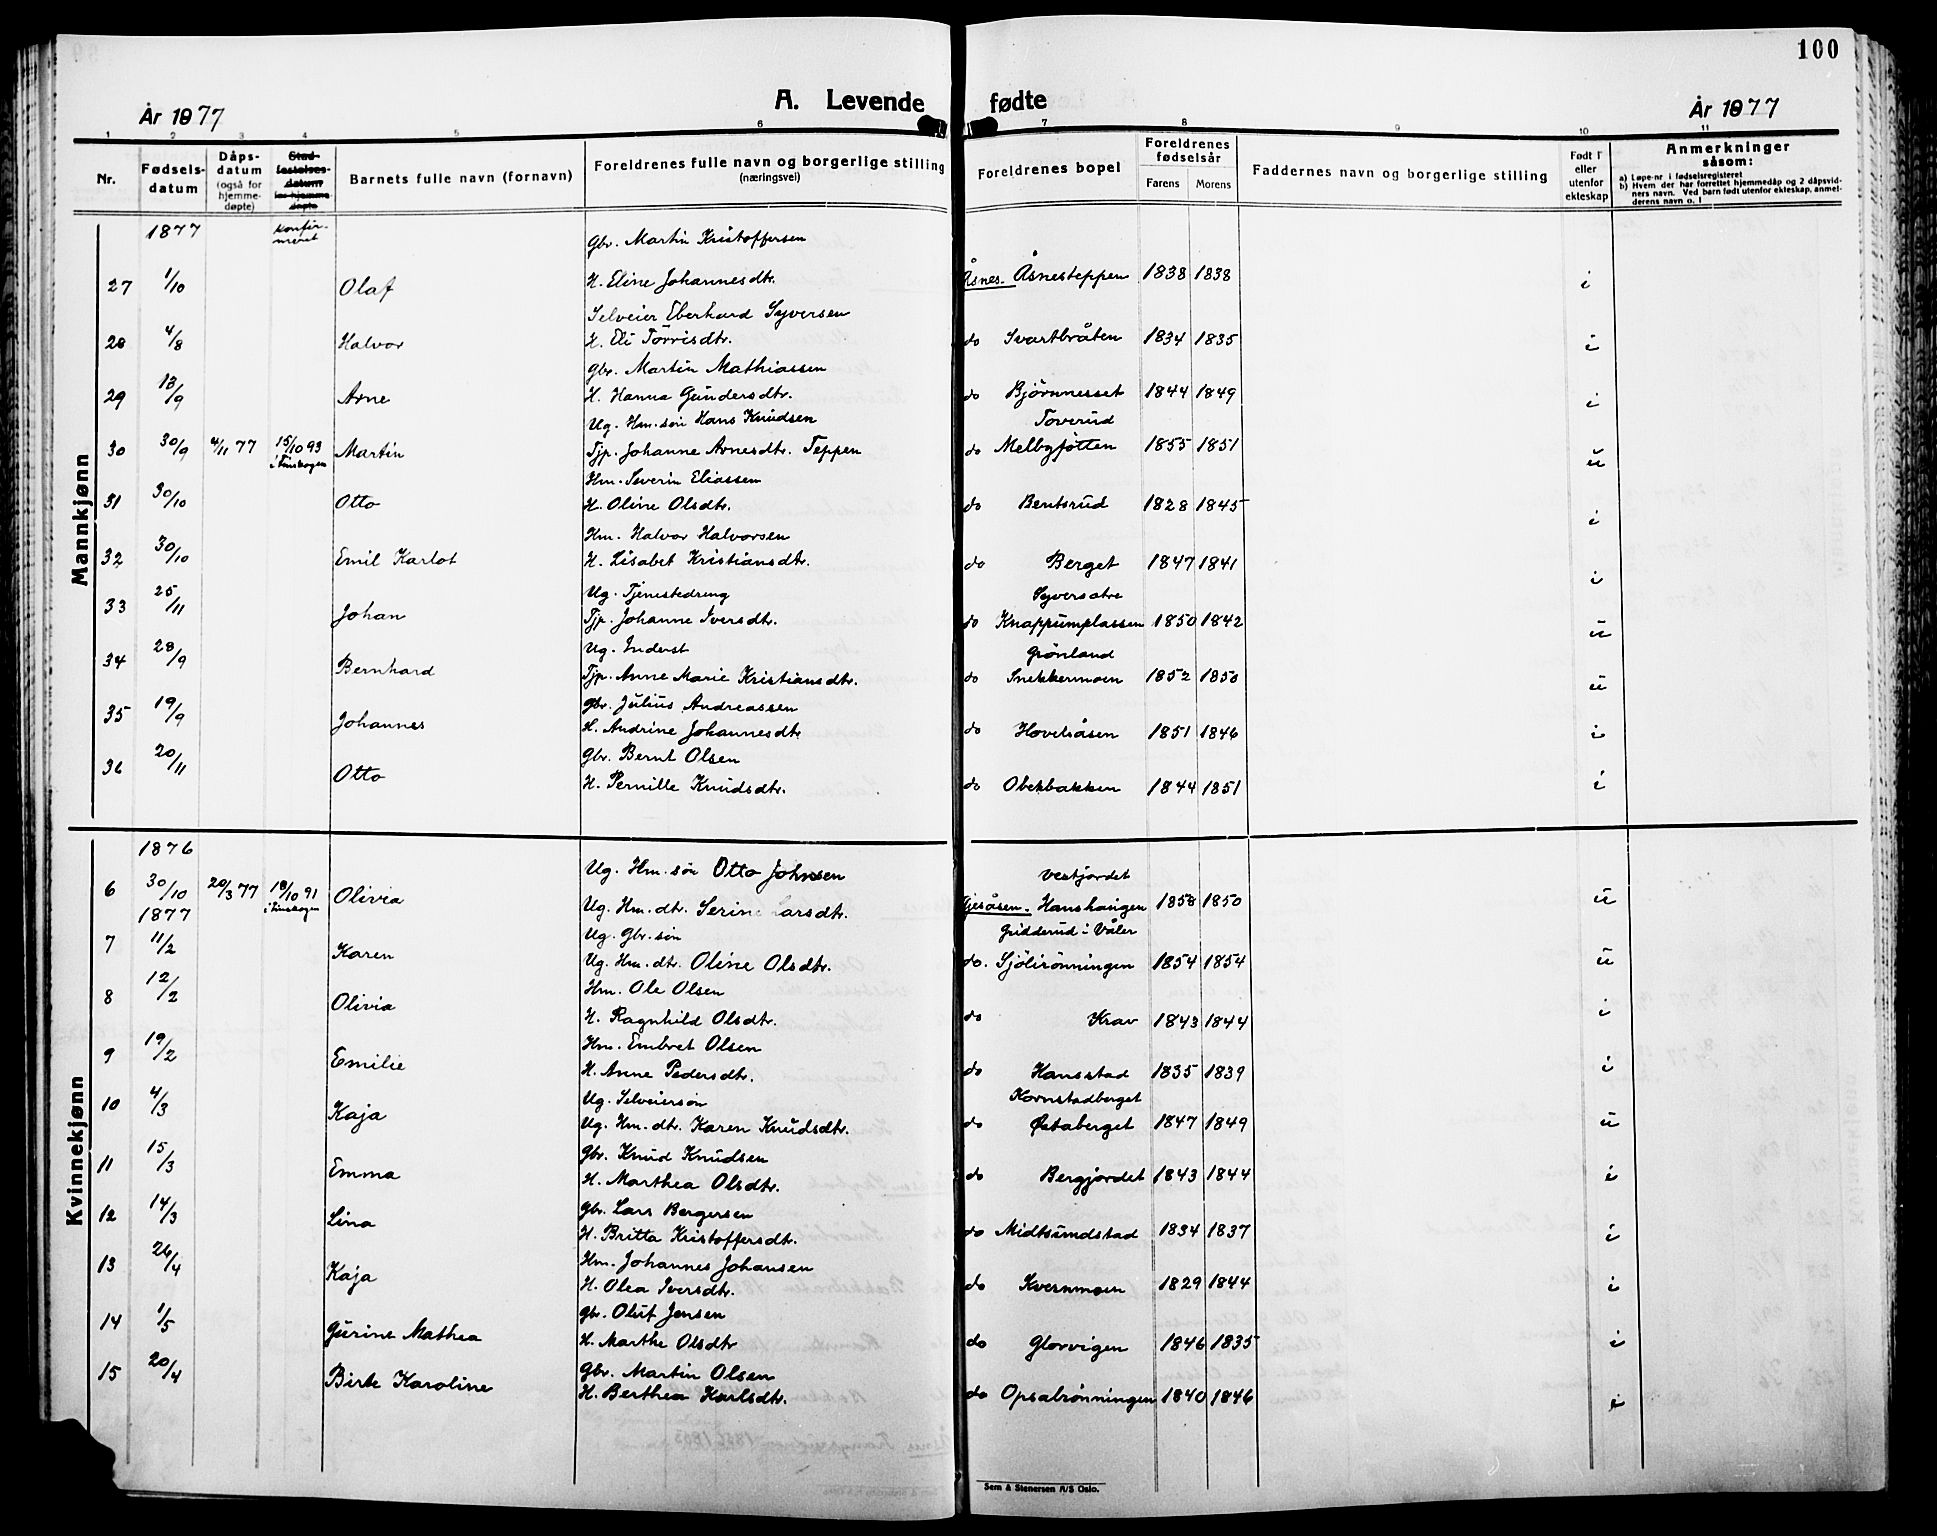 100
A. Levende fødte
År 1877
År 1877
1 2 3 4 5 6 7 8 9 10 11
Nr. Fødselsdatum Dåpsdatum (også for hjemmedøpte) Stadfestelsesdatum for hjemmedøpte Barnets fulle navn (fornavn) Foreldrenes fulle navn og borgerlige stilling (næringsvei) Foreldrenes bopel Foreldrenes fødselsår Farens Morens Faddernes navn og borgerlige stilling Født i eller utenfor ekteskap Anmerkninger såsom:
a) Løpe-nr i fødselsregisteret
b) Hvem der har forrettet hjemmedåp og 2 dåpsvidners navn. Ved barn født utenfor ekteskap, anmelderens navn o. l
Mannkjønn
1877 konfirmeret Gbr. Martin Kristoffersen
27 1/10 Olaf H. Eline Johannesdtr. Åsnes. Åsnesteppen 1838 1838 i
Selveier Eberhard Syversen
28 4/8 Halvor H. Eli Törrisdtr. do Svartbråten 1834 1835 i
Gbr. Martin Mathiassen
29 13/9 Arne H. Hanna Gundersdtr. do Björnnesset 1844 1849 i
Ug. Hm. sön Hans Knudsen Toverud
30 30/9 4/11 77 15/10 93 i Finskogen Martin Tjp. Johanne Arnesdtr. Teppen do Melbyfötten 1855 1851 u
Hm. Severin Eliassen
31 30/10 Otto H. Oline Olsdtr. do Bentsrud 1828 1845 i
Hm. Halvor Halvorsen
32 30/10 Emil Karlot H. Lisabet Kristiansdtr. do Berget 1847 1841 i
Ug. Tjenestedreng Syversætre
33 25/11 Johan Tjp. Johanne Iversdtr. do Knappumplassen 1850 1842 u
Ug. Inderst Grönland
34 28/9 Bernhard Tjp. Anne Marie Kristiansdtr. do Snekkermoen 1852 1850 u
Gbr. Julius Andreassen
35 19/9 Johannes H. Andrine Johannesdtr do Hovelsåsen 1851 1846 i
Gbr. Bernt Olsen
36 20/11 Otto H. Pernille Knudsdtr. do Obekbakken 1844 1851 i
Kvinnekjønn
1876 Ug. Hm. sön Otto Johnsen Vestjordet
6 30/10 20/3 77 18/10 91 i Finskogen Olivia Ug. Hm. dtr. Serine Larsdtr. Gjesåsen. Hanshaugen 1858 1850 u
1877 Ug. Gbr. sön Gridderud i Våler
7 11/2 Karen Ug. Hm. dtr. Oline Olsdtr. do. Sjölirönningen 1854 1854 u
Hm. Ole Olsen
8 12/2 Olivia H. Ragnhild Olsdtr. do Krav 1843 1844 i
Hm. Embret Olsen
9 19/2 Emilie H. Anne Pedersdtr. do Hansstad 1835 1839 i
Ug. Selveiersön Kornstadberget
10 4/3 Kaja Ug. Hm. dtr. Karen Knudsdtr. do Østaberget 1847 1849 u
Gbr. Knud Knudsen
11 15/3 Emma H. Marthea Olsdtr. do Bergjordet 1843 1844 i
Gbr. Lars Bergersen
12 14/3 Lina H. Britta Kristoffersdtr. do Midtsundstad 1834 1837 i
Hm. Johannes Johansen
13 26/4 Kaja H. Olea Iversdtr. do Kvernmoen 1829 1844 i
Gbr. Oluf Jensen
14 1/5 Gurine Mathea H. Marthe Olsdtr do Glorvigen 1846 1835 i
Gbr. Martin Olsen
15 20/4 Birte Karoline H. Berthea Karlsdtr. do Opsalrönningen 1840 1846 i
Sem & Stenersen A/S Oslo.